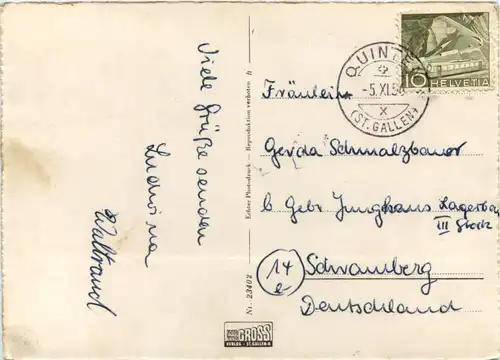 Viele Grüße senden
Ludwina
Waltraud
Echter Photodruck — Reproduktion verboten
Nr. 23402
GROSS
VERLAG - ST. GALLEN
QUINTEN
-5.XI.5
(ST. GALLEN)
10
HELVETIA
Fräulein
Gerda Schmalzbauer
b. Gebr. Junghans Lagerbau
III Stock
14
Schramberg
Deutschland